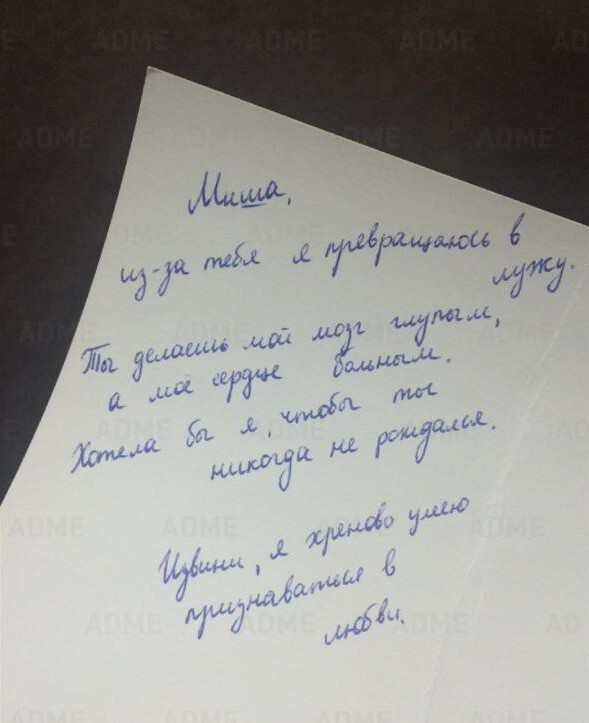 Миша,
из-за тебя я превращаюсь в
лужу.
Ты делаешь мой мозг глупым,
а моё сердце больным.
Хотела бы я, чтобы ты
никогда не рождался.
Извини, я хреново умею
признаваться в
любви.
ADME